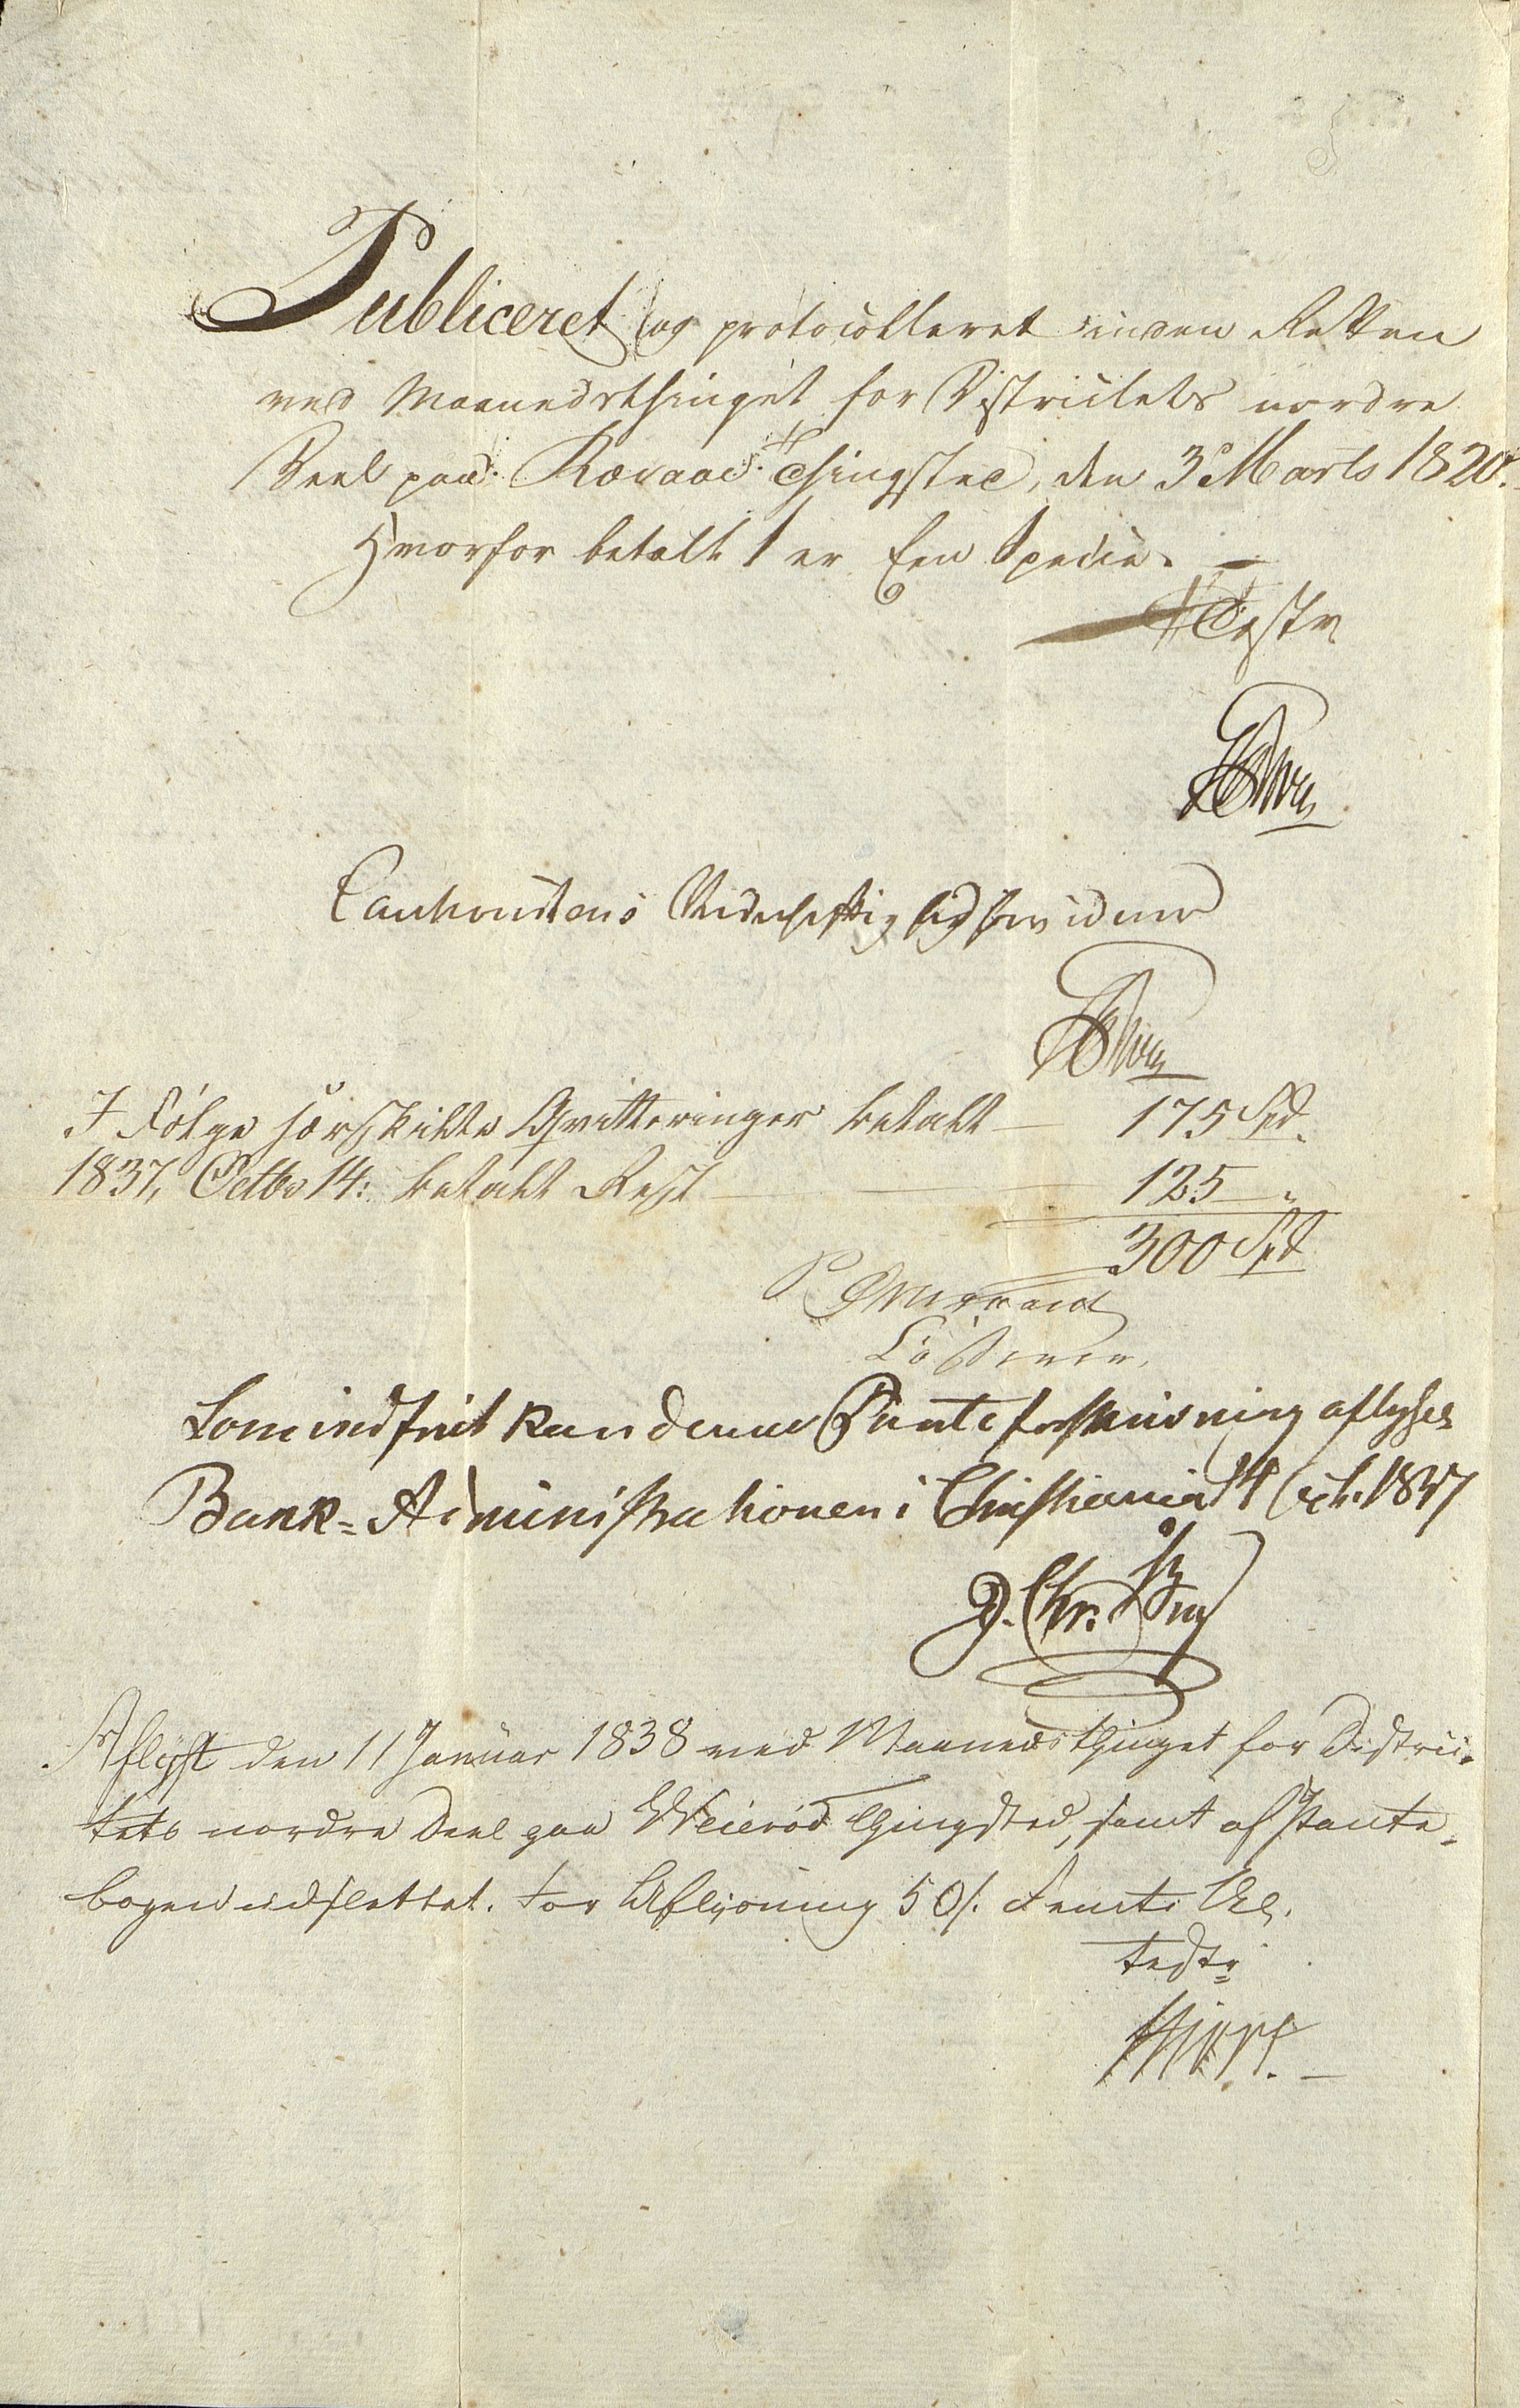 Publiceret og protocolleret inden Retten
ved Maanedsthinget for Districtets nordre
Deel paa Thingsted, den 3 Marts 1820.
Hvorfor betalt 1 er Een Specie.
Testr
Cautionistens Vederheftighed
I Følge særskilte Qvitteringer betalt — 175 Spd.
1837, Octbr 14: betalt Rest — 125 "
300 Spd
Som indfriet kan denne Panteforskrivning aflyses
Bank-Administrationen i Christiania 14 Oct. 1837
D. Chr.
Aflyst den 11 Januar 1838 ved Maanedsthinget for Distric-
tets nordre Deel paa Weierød Thingsted, samt af Pante-
bogen udslettet. For Aflysning 50 s. Femti
testr